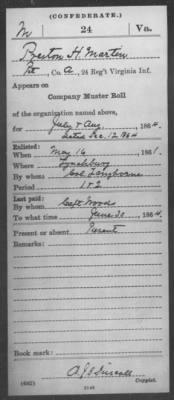 (CONFEDERATE.)
M 24 Va.
Preston H. Martin
Pvt, Co. A, 24 Reg't Virginia Inf.
Appears on
Company Muster Roll
of the organization named above,
for July & Aug, 1864.
dated Dec. 12, 1864
Enlisted:
When May 16, 1861.
Where Lynchburg
By whom Col. Langhorne
Period 1 & 2
Last paid:
By whom Capt. Woods
To what time June 30, 1864.
Present or absent Present
Remarks:
Book mark:
(642)
Copyist.